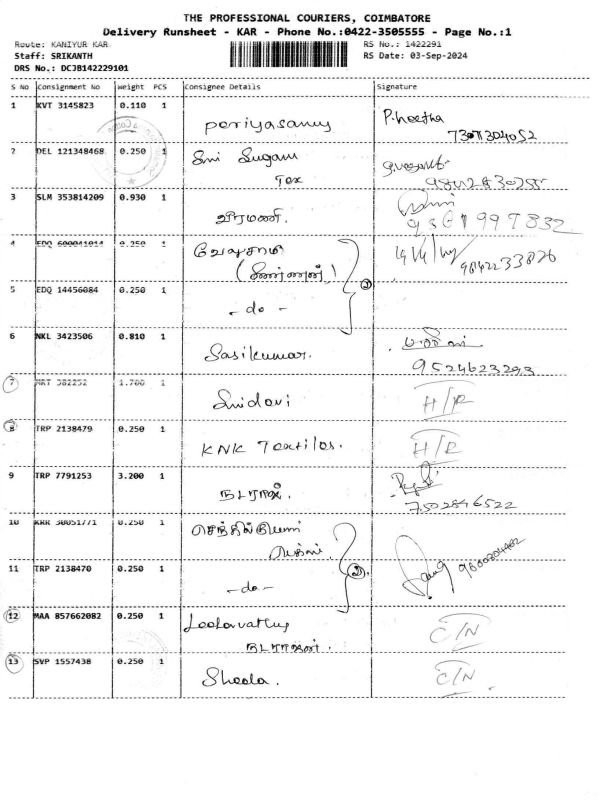 THE PROFESSIONAL COURIERS, COIMBATORE
Delivery Runsheet - KAR - Phone No.:0422-3505555 - Page No.:1
Route: KANIYUR KAR RS No.: 1422291
Staff: SRIKANTH RS Date: 03-Sep-2024
DRS No.: DCJB142229101
S No Consignment No Weight PCS Consignee Details Signature
1 KVT 3145823 0.110 1 Periyasamy P.heetha
2 DEL 121348468 0.250 1 Sri Sugam
Tex
3 SLM 353814209 0.930 1
வீரமணி.
4 EDQ 600041014 0.250 1 வேலுசாமி
9842233826
5 EDQ 14456084 0.250 1
- do -
6 NKL 3423506 0.810 1
Sasikumar.
9524623293
7 MRT 382252 1.700 1
Sridevi H/R
8 TRP 2138479 0.250 1
KNK Textiles. H/R
9 TRP 7791253 3.200 1
நடராஜ்.
7502846522
10 KRR 30051771 0.250 1
11 TRP 2138470 0.250 1 9600204402
- do -
12 MAA 857662082 0.250 1 Leelavathy C/N
நடராஜன்.
13 SVP 1557438 0.250 1 C/N
Sheela.